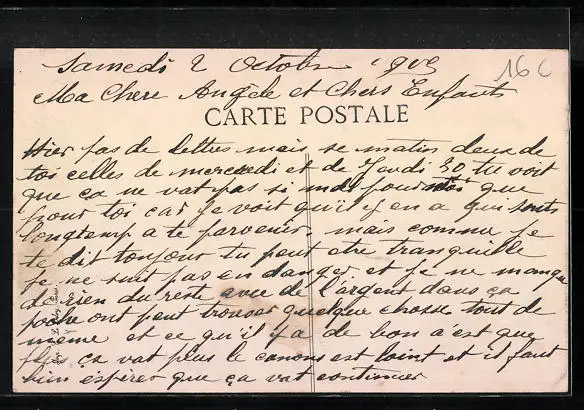 Samedi 2 Octobre 1915
16 C
Ma Chere Angele et Chers Enfants
CARTE POSTALE
Hier pas de lettres mais se matin deux de
toi celles de mercredi et de Jeudi 30 tu voit
que ça ne vat pas si mal pour moi que
pour toi car je voit qu'il y en a qui sont
longtemp a te parvenir. mais comme je
te dit toujour tu peut etre tranquille
je ne suit pas en danger et je ne manque
de rien du reste avec de l'argent dans ça
poche ont peut trouver quelque chose tout de
meme et ce qu'il y a de bon c'est que
plus ça vat plus le canons est loint et il faut
bien espérer que ça vat continuer